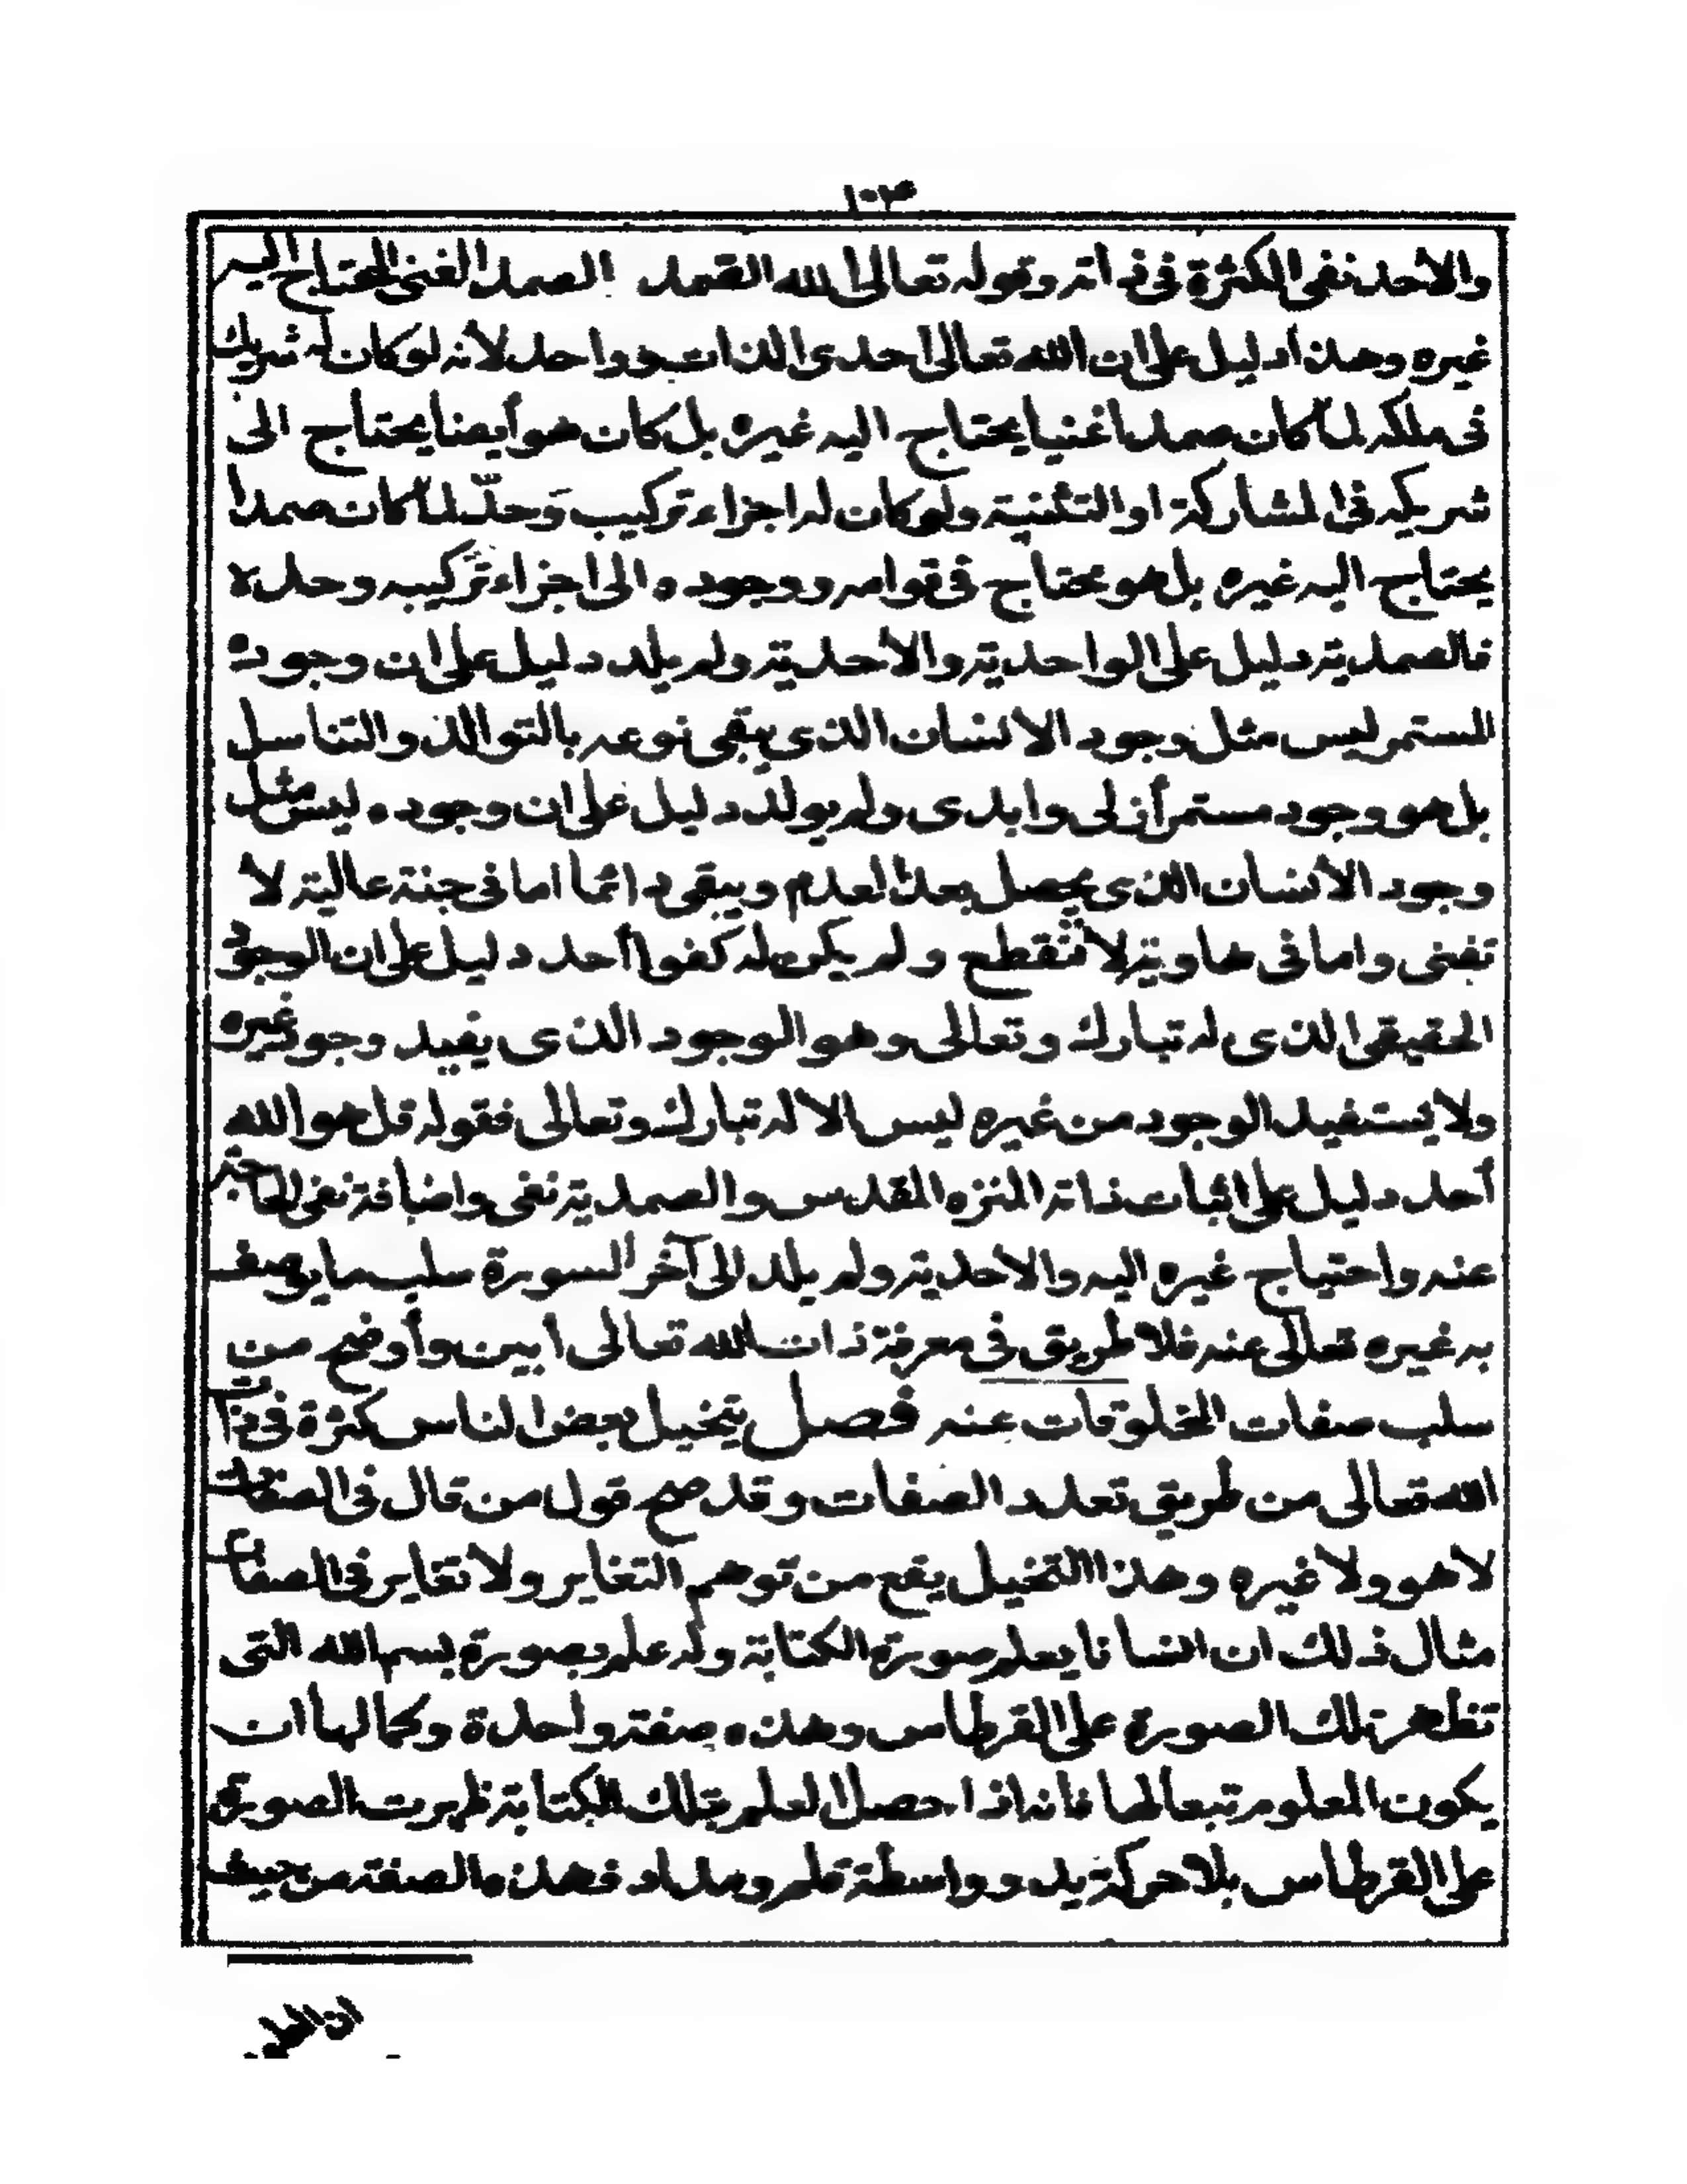 ١٠٣
والاحد نفى الكثرة فى ذاته وقوله تعالى الله الصمد الصمد الغنى المحتاج اليه
غيره وهذا دليل على ان الله تعالى احدى الذات وواحد لأنه لو كان له شريك
فى ملكه لما كان صمدا غنيا يحتاج اليه غيره بل كان هو أيضا يحتاج الى
شريكه فى المشاركة او التثنية ولو كان له اجزاء تركيب وَحدّ لما كان صمدا
يحتاج اليه غيره بل هو محتاج فى قوامه ووجوده الى اجزاء تركيبه وحده
فالصمدية دليل على الواحدية والأحدية ولم يلد دليل على ان وجوده
المستمر ليس مثل وجود الانسان الذى يبقى نوعه بالتوالد والتناسل
بل هو وجود مستمر أزلى وابدى ولم يولد دليل على ان وجوده ليس مثل
وجود الأنسان الذى يحصل بعد العدم ويبقى دائما اما فى جنة عالية لا
تفنى واما فى هاوية لا تنقطع ولم يكن له كفوا أحد دليل على ان الوجود
الحقيقى الذى له تبارك وتعالى وهو الوجود الذى يفيد وجود غيره
ولا يستفيد الوجود من غيره ليس الا له تبارك وتعالى فقوله قل هو الله
أحد دليل على اثبات ذاته المنزه المقدس والصمدية نفى واضافة نفى الحاجة
عنه واحتياج غيره اليه والاحدية ولم يلد الى آخر السورة سلب ما يوصف
به غيره تعالى عنه فلا طريق فى معرفة ذات الله تعالى أبين وأوضح من
سلب صفات المخلوقات عنه فصل يتخيل بعض الناس كثرة فى ذات
الله تعالى من طريق تعدد الصفات وقد صح قول من قال فى الصفات
لا هو ولا غيره وهذا التخيل يقع من توهم التغاير ولا تغاير فى الصفات
مثال ذلك ان انسانا يعلم صورة الكتابة وله علم بصورة بسم الله التى
تظهر تلك الصورة على القرطاس وهذه صفة واحدة وكمالها ان
يكون المعلوم تبعا لها فانه اذا حصل العلم بتلك الكتابة ظهرت الصورة
على القرطاس بلا حركة يد وواسطة قلم ومداد فهذه الصفة من حيث
ان المعلوم